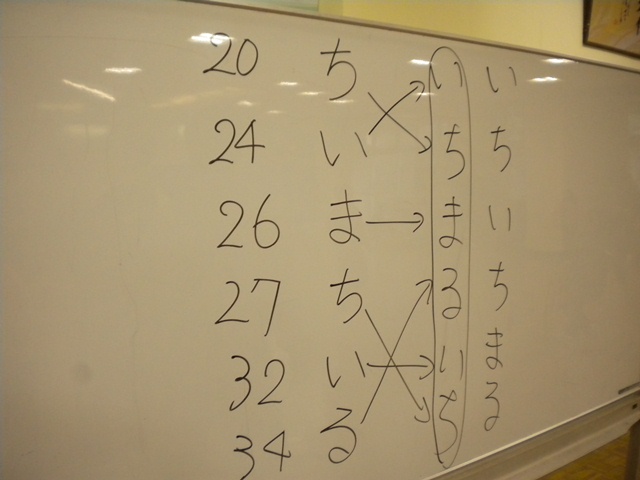 20 ち い い
24 い ち ち
26 ま ま い
27 ち る ち
32 い い ま
34 る ち る